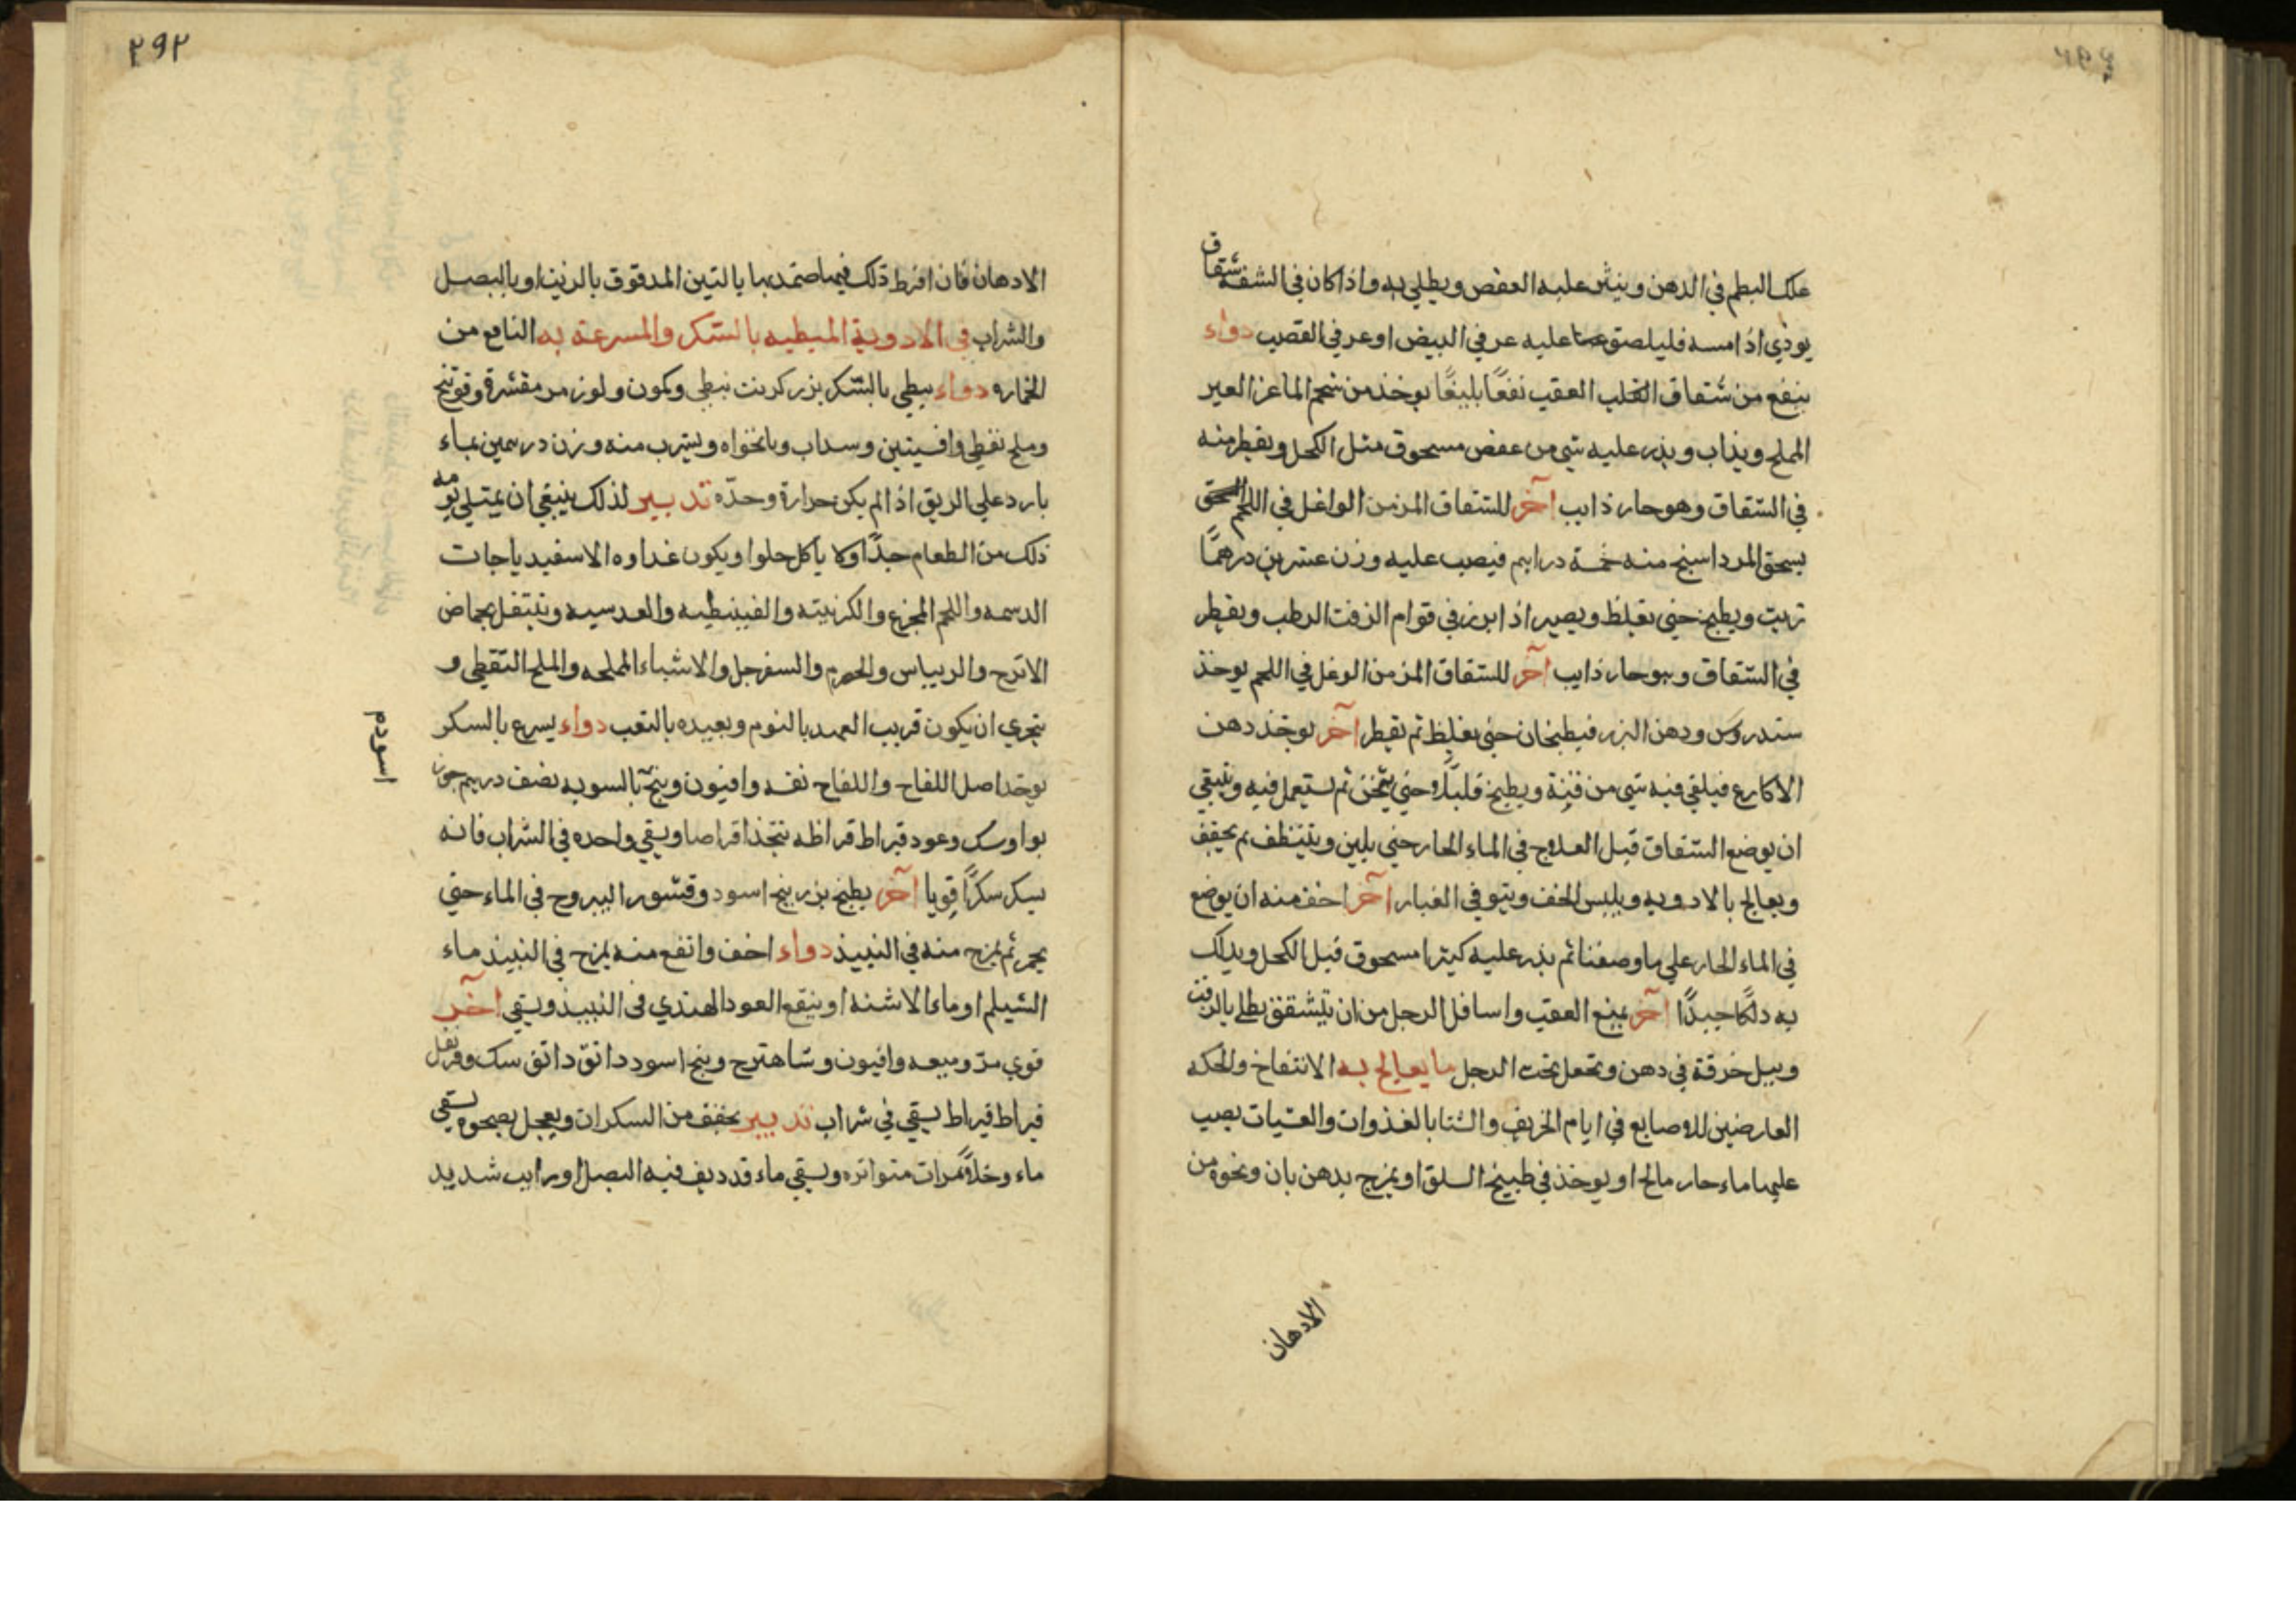 علك البطم في الدهن وينثر عليه العفص ويطلي به واذا كان في الشفة شقاق
يوذي اذا مسه فليلصق عليه عرفي البيض او عرفي القصب دواء
ينفع من شقاق العقب نفعًا بليغًا يوخذ من شحم الماعز العير
المملح ويذاب ويذر عليه شي من عفص مسحوق مثل الكحل ويقطر منه
في الشقاق وهو حار ذايب آخر للشقاق المزمن الواغل في اللحم
يسحق المرداسنج منه خمسة دراهم فيصب عليه وزن عشرين درهمًا
زيت ويطبخ حتي يغلظ ويصير اذا برز في قوام الزفت الرطب ويقطر
في الشقاق وهو حار ذايب آخر للشقاق المزمن الوغل في اللحم يوخذ
سندروس ودهن البزر فيطبخان حتي يغلظ ثم يقطر آخر يوخذ دهن
الاكارع فيلقي فيه شي من قنة ويطبخ قليلًا حتي يثخن ثم يستعمل فيه وينبغي
ان يوضع الشقاق قبل العلاج في الماء الحار حتي يلين ويتنظف ثم يجفف
ويعالج بالادويه ويلبس الخف ويتوقي الغبار آخر اخف منه ان يوضع
في الماء الحار علي ما وصفنا ثم يذر عليه كثيرا مسحوق قبل الكحل ويدلك
به دلكًا جيدًا آخر يمنع العقب واسافل الرجل من ان يتشقق يطلي بالزفت
ويبل خرقة في دهن وتجعل تحت الرجل ما يعالج به الانتفاخ والحكه
العارضين للاصابع في ايام الخريف والشتا بالغذوات والعشيات يصب
عليها ماء حار مالح او يوخذ في طبيخ السلق او يمزج بدهن بان ونحوه من
الادهان
٢٩٢
الادهان فان افرط ذلك فيها ضمدها بالتين المدقوق بالزيت او بالبصل
والشراب في الادوية المبطيه بالسكر والمسرعة به النافع من
الخماره دواء يبطي بالسكر بزر كرنب نبطي وكمون ولوز مر مقشرة وفوتنج
وملح نفطي وافسنتين وسداب ونانخواه ويشرب منه وزن درهمين بماء
بارد علي الريق اذا لم يكن حرارة وحدّه تدبير لذلك ينبغي ان يمتلي يومه
ذلك من الطعام جدًا ولا ياكل حلوا ويكون غداوه الاسفيدياجات
الدسمه واللحم المجزع والكرنبيه والقنبيطيه والعدسيه ويتنقل بحماض
الاترج والريباس والحصرم والسفرجل والاشياء المملحه والملح النفطي و
يتحري ان يكون قريب العهد بالنوم وبعيده بالتعب دواء يسرع بالسكر
يوخذ اصل اللفاح واللفاح نفسه وافيون وبنج بالسويه نصف درهم جوز
بوا وسك وعود قيراط قيراط يتخذ اقراصا ويسقي واحده في الشراب فانه
يسكر سكرًا قويا آخر يطبخ بزر بنج اسود وقشور اليبروح في الماء حتي
يحمر ثم يمزج منه في النبيذ دواء اخف وانفع منه يمزج في النبيذ ماء
الشيلم او ماء الاشنه او ينقع العود الهندي في النبيذ ويسقي آخر
قوي مرّ وميعه وافيون وشاهترج وبنج اسود دانق دانق سك وقرنفل
قيراط قيراط يسقي في شراب تدبير يخفف من السكران ويعجل بصحوه يسقي
ماء وخلًا مرات متواتره ويسقي ماء قد ديف فيه البصل او رايب شديد
اسود م